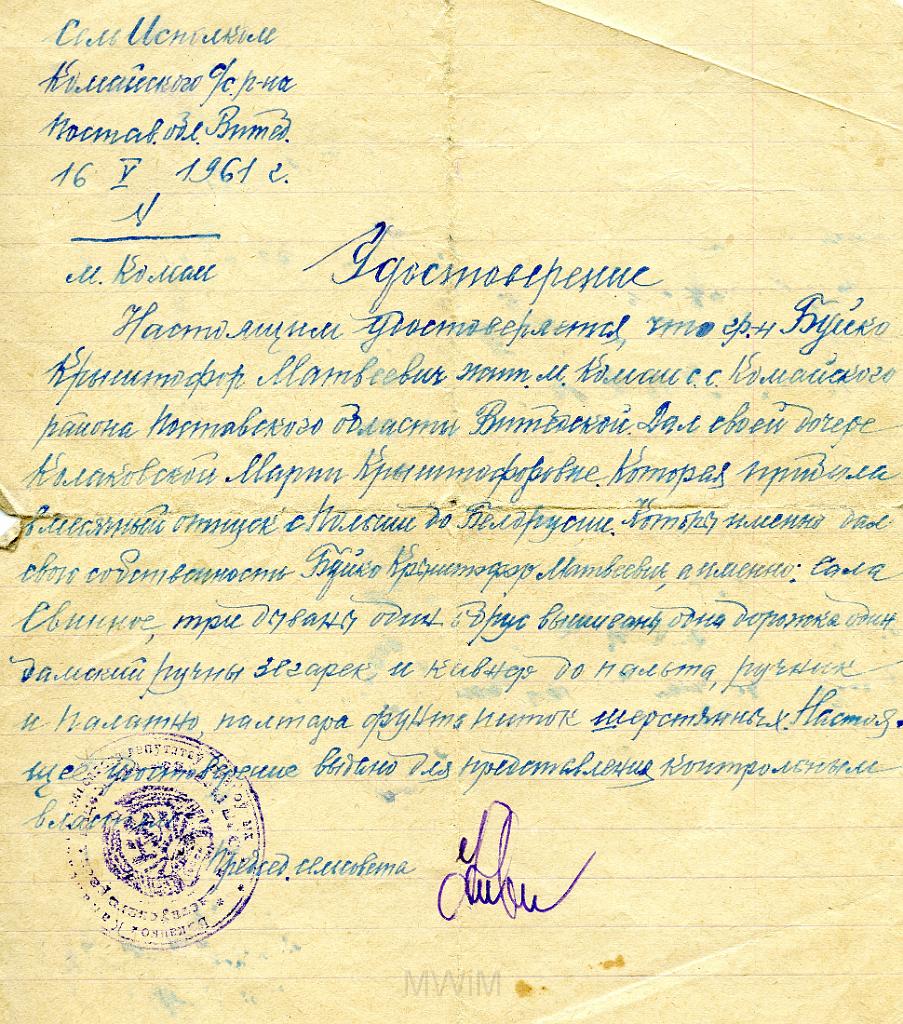 СельИсполком
Комайского с/с. р-на
Постав. обл. Витеб.
16 V 1961 г.
N
м. Комаи
Удостоверение
Настоящим удостоверяется, что гр-н Буйко
Крыштофор Матвеевич жит. м. Комаи с. с. Комайского
района Поставского области Витебской. Дал своей дочере
Колаковской Марии Крыштофоровне. Которая прибыла
в месячный отпуск с Польши до Белорусии. Которы именно дал
свою собственности Буйко Крыштофор Матвеевич, а именно: Сала
Свинное, три дываны один обрус вышиваны одна дорожка один
дамский ручны зегарек и кавнер до пальта, ручник
и палатно, палтара фунта ниток шерстяных. Настоя-
щее удостоверение выдано для представления контрольным
властям
Председ. сельсовета
MWiM